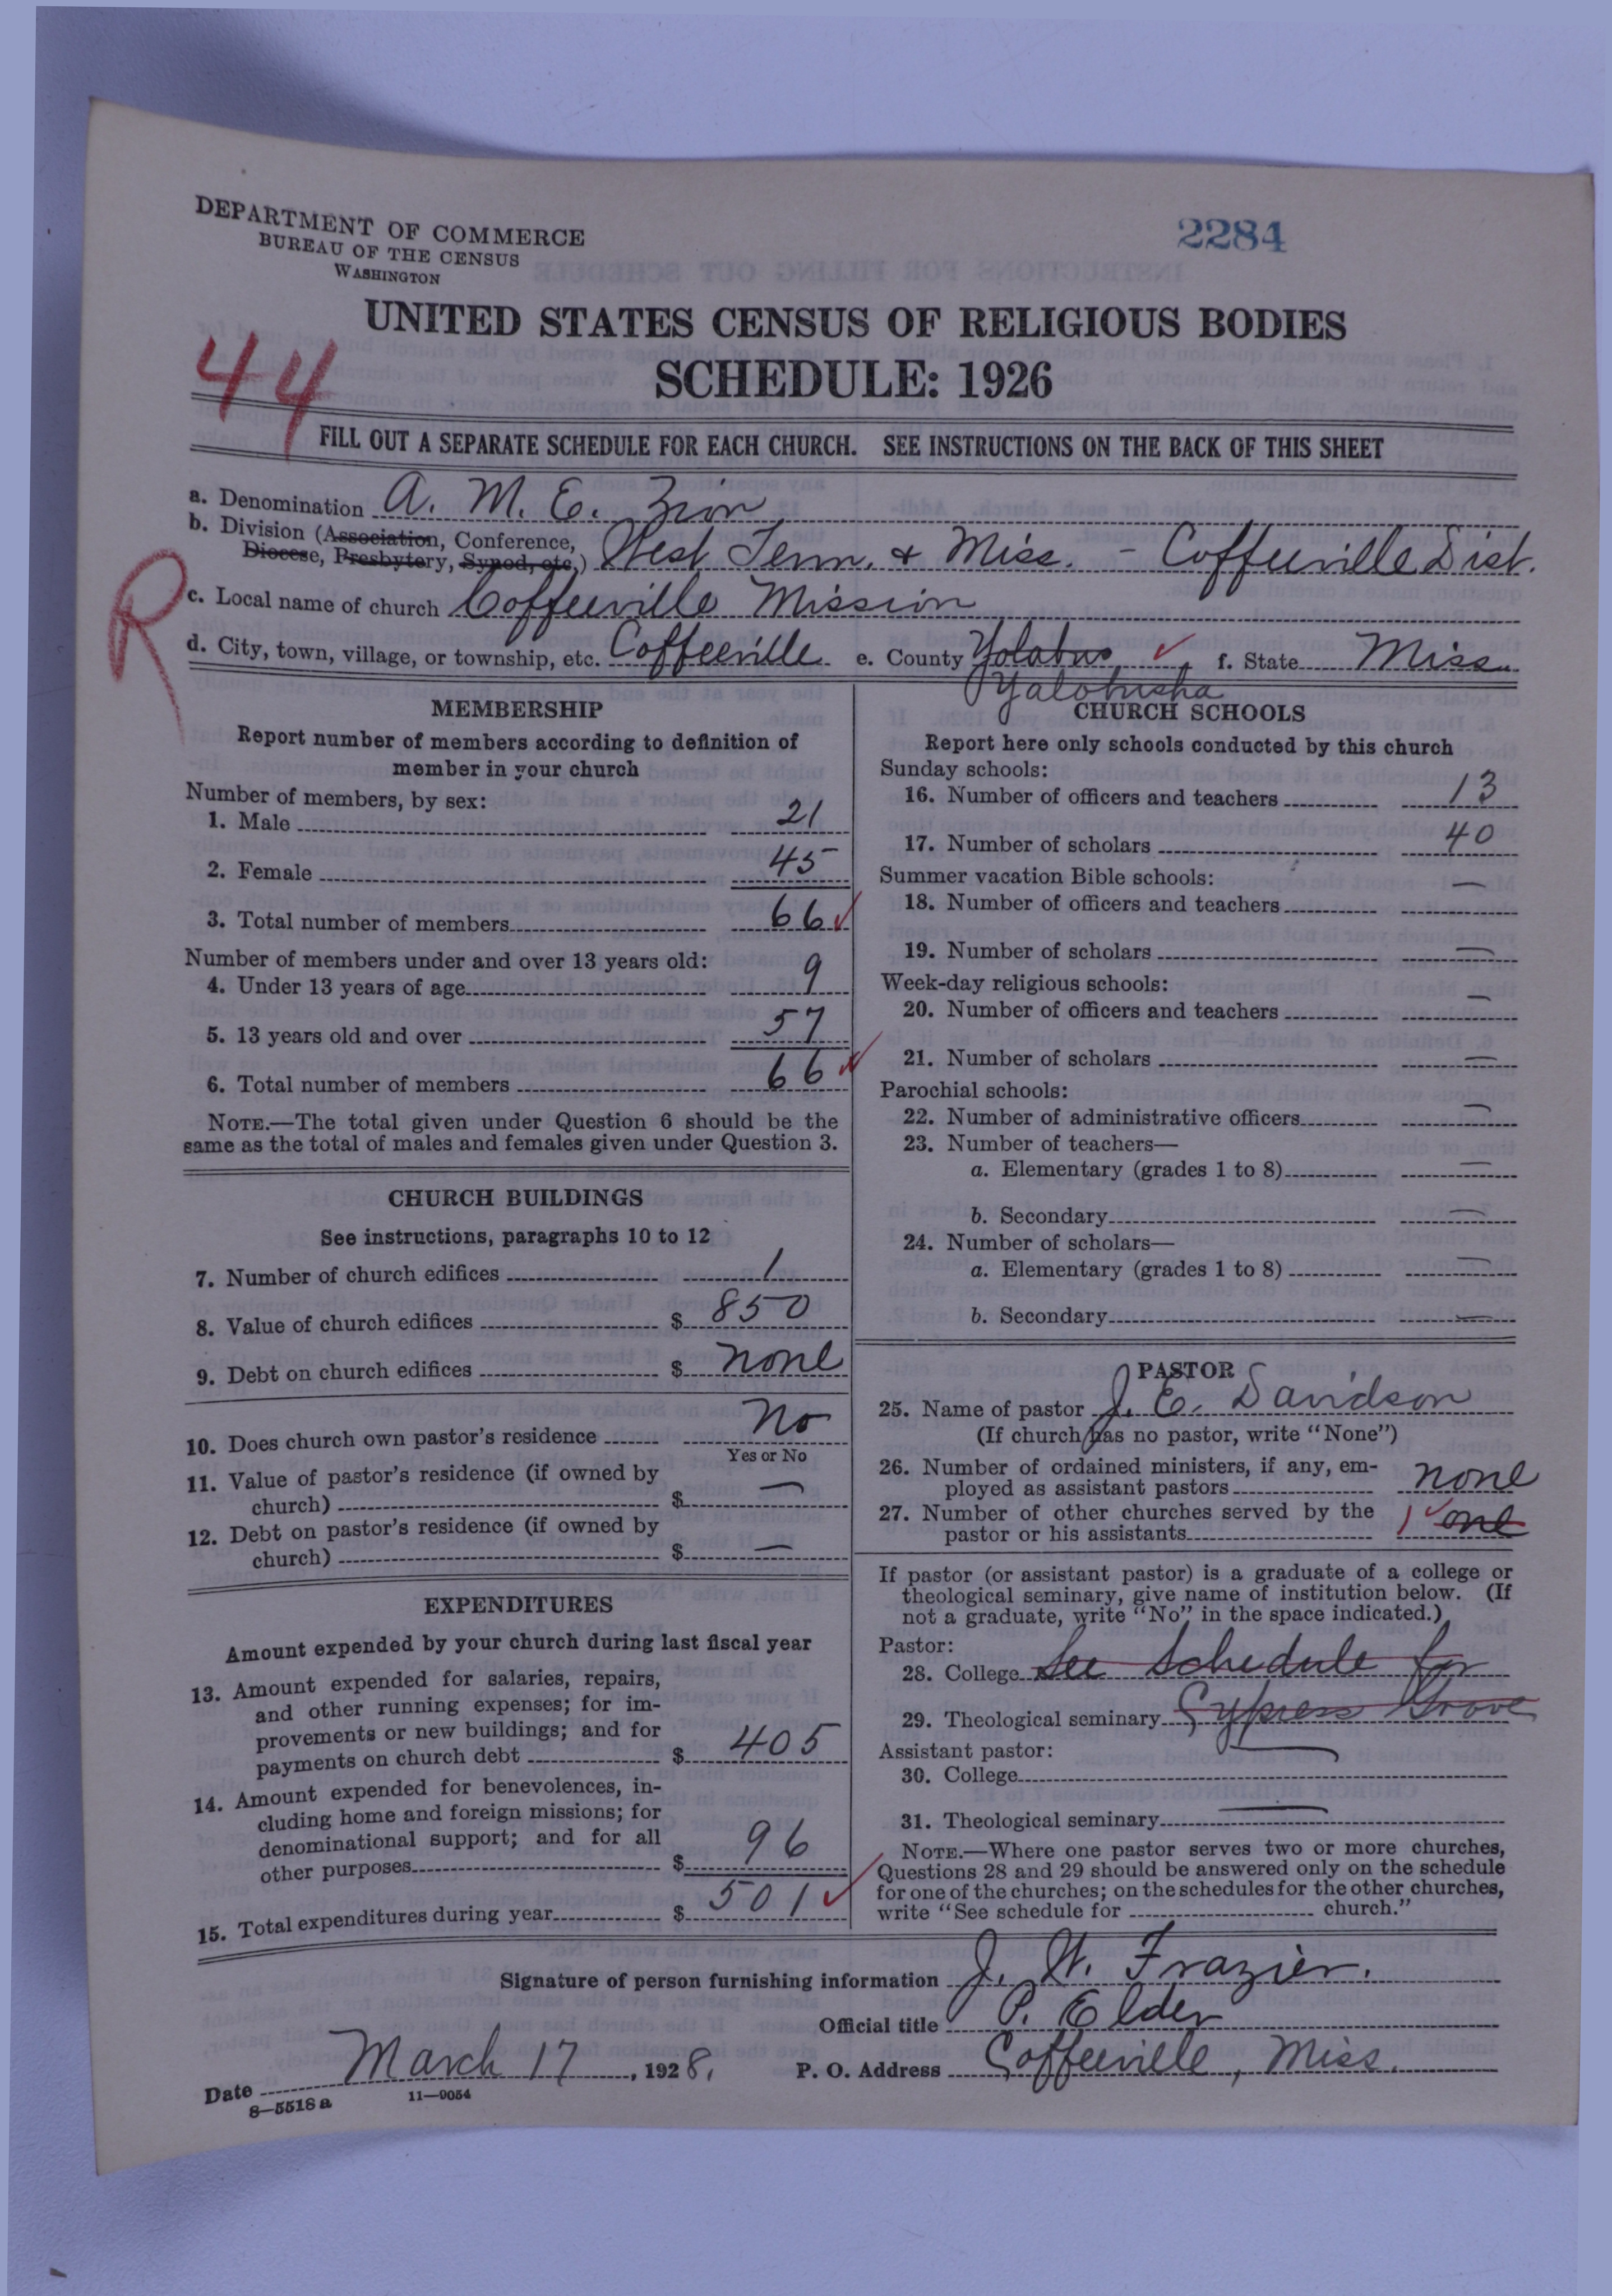 DEPARTMENT OF COMMERCE
BUREAU OF THE CENSUS
WASHINGTON
2284
UNITED STATES CENSUS OF RELIGIOUS BODIES
SCHEDULE: 1926
44
FILL OUT A SEPARATE SCHEDULE FOR EACH CHURCH. SEE INSTRUCTIONS ON THE BACK OF THIS SHEET
a. Denomination A. M. E. Zion
b. Division (Association, Conference,
Diocese, Presbytery, Synod, etc.) West Tenn. & Miss. - Coffeeville Dist.
R
c. Local name of church Coffeeville Mission
d. City, town, village, or township, etc. Coffeeville e. County Yolabus, f. State Miss.
Yalobusha
MEMBERSHIP
Report number of members according to definition of
member in your church
Number of members, by sex:
1. Male 21
2. Female 45
3. Total number of members 66
Number of members under and over 13 years old:
4. Under 13 years of age 9
5. 13 years old and over 57
6. Total number of members 66
NOTE.—The total given under Question 6 should be the
same as the total of males and females given under Question 3.
CHURCH BUILDINGS
See instructions, paragraphs 10 to 12
7. Number of church edifices 1
8. Value of church edifices $ 850
9. Debt on church edifices $ none
10. Does church own pastor's residence No
Yes or No
11. Value of pastor's residence (if owned by
church) $ —
12. Debt on pastor's residence (if owned by
church) $ —
EXPENDITURES
Amount expended by your church during last fiscal year
13. Amount expended for salaries, repairs,
and other running expenses; for im-
provements or new buildings; and for
payments on church debt $ 405
14. Amount expended for benevolences, in-
cluding home and foreign missions; for
denominational support; and for all
other purposes $ 96
15. Total expenditures during year $ 501
CHURCH SCHOOLS
Report here only schools conducted by this church
Sunday schools:
16. Number of officers and teachers 13
17. Number of scholars 40
Summer vacation Bible schools:
18. Number of officers and teachers —
19. Number of scholars —
Week-day religious schools:
20. Number of officers and teachers —
21. Number of scholars —
Parochial schools:
22. Number of administrative officers —
23. Number of teachers—
a. Elementary (grades 1 to 8) —
b. Secondary —
24. Number of scholars—
a. Elementary (grades 1 to 8) —
b. Secondary —
PASTOR
25. Name of pastor J. E. Davidson
(If church has no pastor, write "None")
26. Number of ordained ministers, if any, em-
ployed as assistant pastors none
27. Number of other churches served by the
pastor or his assistants 1 one
If pastor (or assistant pastor) is a graduate of a college or
theological seminary, give name of institution below. (If
not a graduate, write "No" in the space indicated.)
Pastor:
28. College See Schedule for
29. Theological seminary Cypress Grove
Assistant pastor:
30. College —
31. Theological seminary —
NOTE.—Where one pastor serves two or more churches,
Questions 28 and 29 should be answered only on the schedule
for one of the churches; on the schedules for the other churches,
write "See schedule for church."
Signature of person furnishing information J. W. Frazier.
Official title P. Elder
Date March 17, 1928. P. O. Address Coffeeville, Miss.
8—5518 a 11—9054